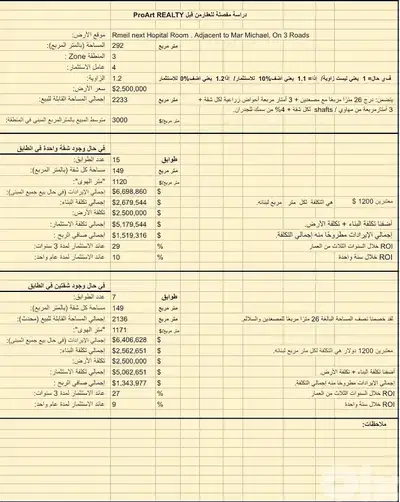 دراسة مفصلة للعقار من قبل ProArt REALTY
موقع الأرض: Rmeil next Hopital Room . Adjacent to Mar Michael, On 3 Roads
المساحة (بالمتر المربع): 292 متر مربع
المنطقة Zone : 3
عامل الاستثمار: 4
الزاوية: 1.2 فـي حال= 1 يعني ليست زاوية/ إذا= 1.1 يعني أضف 10% للاستثمار/ إذا 1.2 يعني أضف 0% للاستثمار
سعر الأرض: $2,500,000
إجمالي المساحة القابلة للبيع: 2233 متر مربع يتضمن: درج 26 مترًا مربعًا مع مصعدين + 3 أمتار مربعة أحواض زراعية لكل شقة +
3 أمتار مربعة من مهاوي / shafts لكل شقة + 4% من سمك للجدران.
متوسط المبيع بالمتر المربع المبنى في المنطقة: 3000 متر مربع/$
في حال وجود شقة واحدة في الطابق
عدد الطوابق: 15 طوابق
مساحة كل شقة (بالمتر المربع): 149 متر مربع
"متر الهوى": 1120 متر مربع/$
إجمالي الإيرادات (في حال بيع جميع المبنى): $6,698,860 $
إجمالي تكلفة البناء: $2,679,544 $ معتبرين 1200 $ هي التكلفة لكل متر مربع لبنائه.
تكلفة الأرض: $2,500,000 $
إجمالي تكلفة الاستثمار: $5,179,544 $ أضفنا تكلفة البناء + تكلفة الأرض.
إجمالي صافي الربح : $1,519,316 $ إجمالي الإيرادات مطروحًا منه إجمالي التكلفة.
عائد الاستثمار لمدة 3 سنوات: 29 % ROI خلال السنوات الثلاث من العمار
عائد الاستثمار لمدة عام واحد: 10 % ROI خلال سنة واحدة
في حال وجود شقتين في الطابق
عدد الطوابق: 7 طوابق
مساحة كل شقة (بالمتر المربع): 149 متر مربع
إجمالي المساحة القابلة للبيع (محدث): 2136 متر مربع لقد خصمنا نصف المساحة البالغة 26 مترًا مربعًا للمصعدين والسلالم.
"متر الهوى": 1171 متر مربع/$
إجمالي الإيرادات (في حال بيع جميع المبنى): $6,406,628 $
إجمالي تكلفة البناء: $2,562,651 $ معتبرين 1200 دولار هي التكلفة لكل متر مربع لبنائه.
تكلفة الأرض: $2,500,000 $
إجمالي تكلفة الاستثمار: $5,062,651 $ أضفنا تكلفة البناء + تكلفة الأرض.
إجمالي صافي الربح : $1,343,977 $ إجمالي الإيرادات مطروحًا منه إجمالي التكلفة.
عائد الاستثمار لمدة 3 سنوات: 27 % ROI خلال السنوات الثلاث من العمار
عائد الاستثمار لمدة عام واحد: 9 % ROI خلال سنة واحدة
ملاحظات: